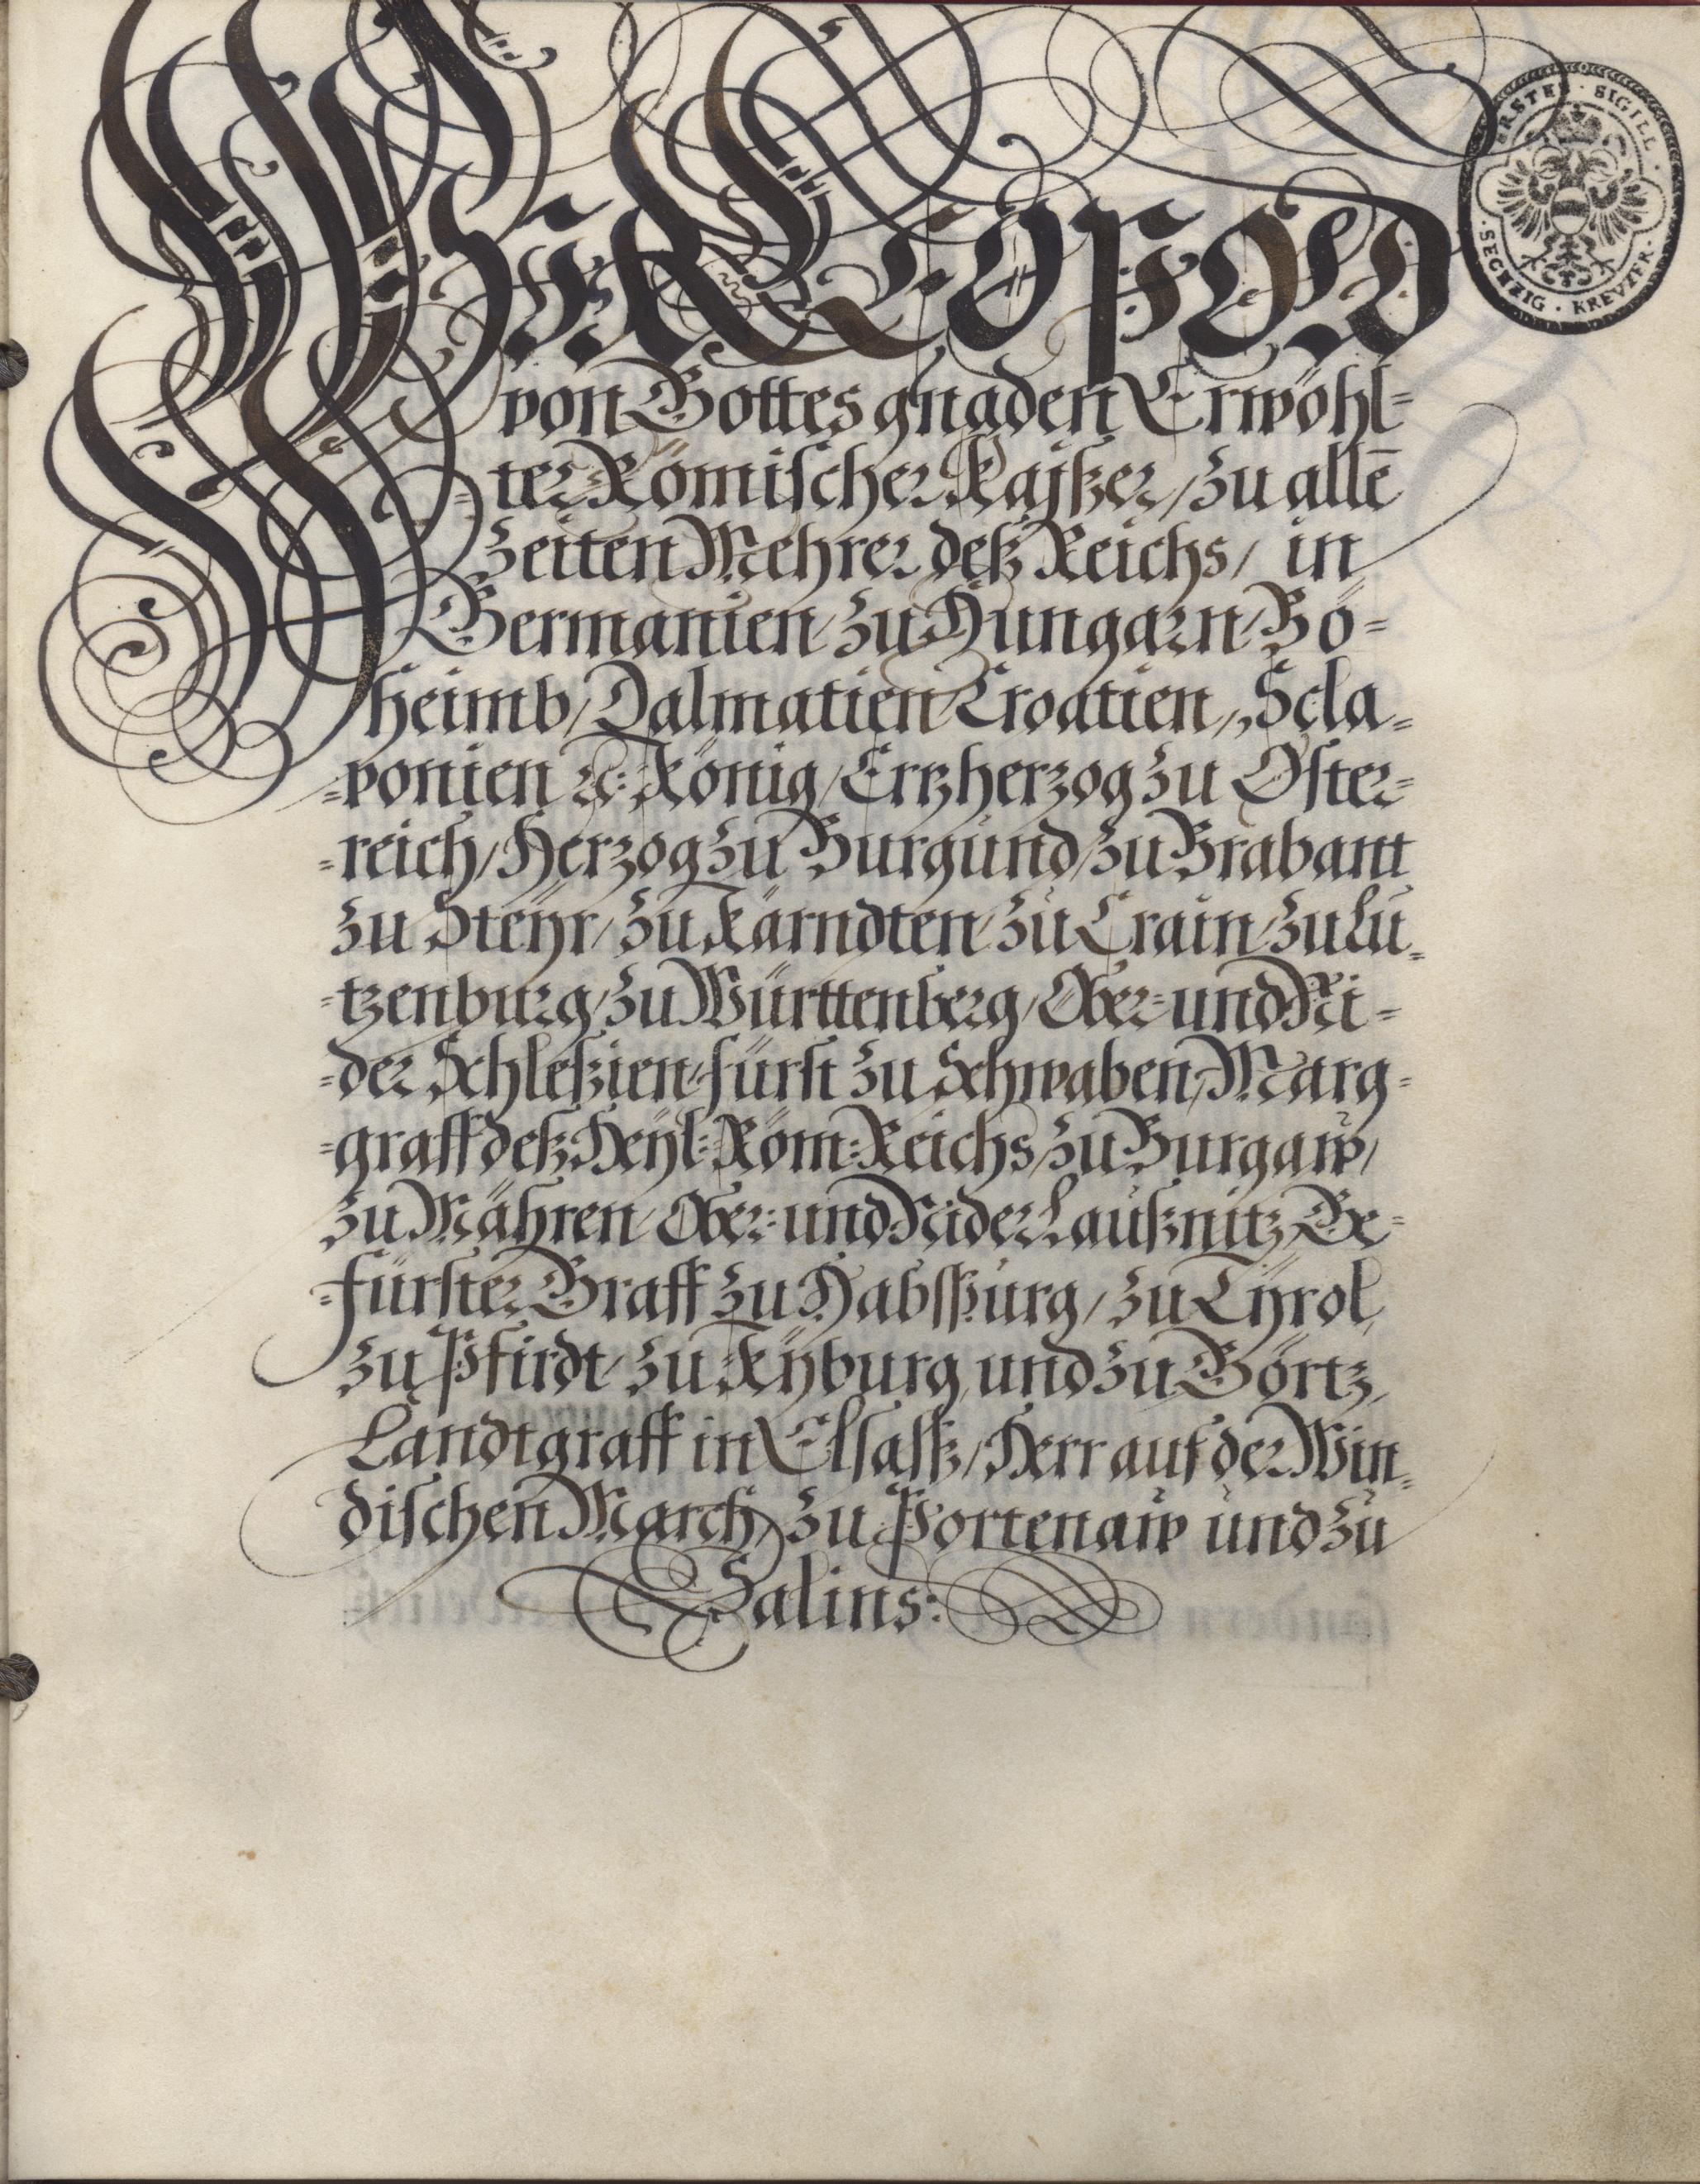 Wir Leopold
von Gottes gnaden Erwöhl=
ter Römischer Kaÿßer, / zu allē
Zeiten Mehrer deß Reichs / in
Germanien / zu Hungarn / Bö=
heimb / Dalmatien / Croatien / Scla=
=vonien ꝛc: König / Ertzherzog zu Öster=
=reich / Herzog zu Burgund / zu Brabant
zu Steÿr / zu Kärndten / zu Crain / zu Lu=
=tzenburg / zu Württenberg / Ober= und Ni=
=der Schleßien / Fürst zu Schwaben / Marg=
=graff deß Heÿl: Röm: Reichs / zu Burgaw /
zu Mähren / Ober= und Nider Laußnitz / Ge=
=fürster Graff zu Habspurg / zu Tÿrol,
zu Pfirdt / zu Kÿburg, und zu Görtz,
Landtgraff in Elsasß / Herr auf der Win=
dischen March, zu Portenaw und zu
Salins:
ERSTES · SIGILL · SECHZIG · KREVZER ·